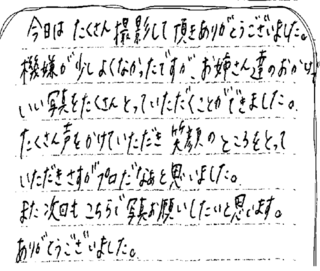 今日は たくさん 撮影して 頂きありがとうございました。
機嫌が少しよくなかったですが、お姉さん達のおかげで
いい写真をたくさんとっていただくことができました。
たくさん声をかけていただき 笑顔のところをとって
いただきさすがプロだなぁと思いました。
また次回もこちらで写真お願いしたいと思います。
ありがとうございました。